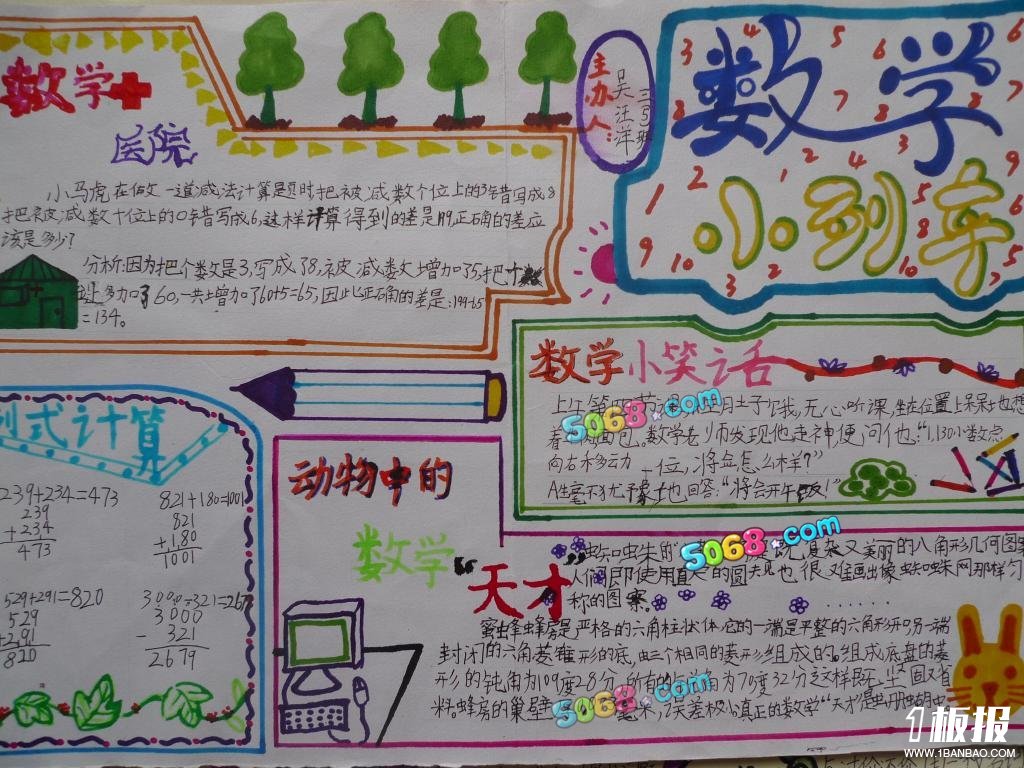 数学
医院
小马虎在做一道减法计算题时把被减数个位上的3错写成8
把被减数十位上的0错写成6,这样计算得到的差是199,正确的差应
该是多少?
分析:因为把个数是3,写成了8,被减数增加了5,把十
上多加了60,一共增加了60+5=65,因此正确的差是:199-65
=134。
主办人:
吴汪洋
三5班
数学
小列车
3 4 5 6 6
8 7 8
1 2 1 2 4 3
9 10 3 2 8 10 5
数学小笑话
无心听课,坐在位置上呆呆地想
着 面包。数学老师发现他走神,便问他:“1,130小数点
向右移动一位,将会怎么样?”
A生毫不犹豫地回答:“将会开午饭!”
5068.com
列式计算
239+234=473
239
+234
473
821+180=1001
821
+180
1001
529+291=820
529
+291
820
3000-321=2679
3000
- 321
2679
动物中的
数学“天才”
蜘蛛的 既复杂又美丽的八角形几何图案
人们即使用直尺的圆规也很难画出像蜘蛛网那样匀
称的图案。 ......
5068.com
蜜蜂蜂房是严格的六角柱状体,它的一端是平整的六角形开口,另一端
封闭的六角菱锥形的底,由三个相同的菱形组成的。组成底盘的菱
形的钝角为109度28分,所有的 角为70度32分这样既坚固又省
料。蜂房的巢壁 毫米,误差极小。真正的数学“天才”是
5068.com
1板报
WWW.1BANBAO.COM